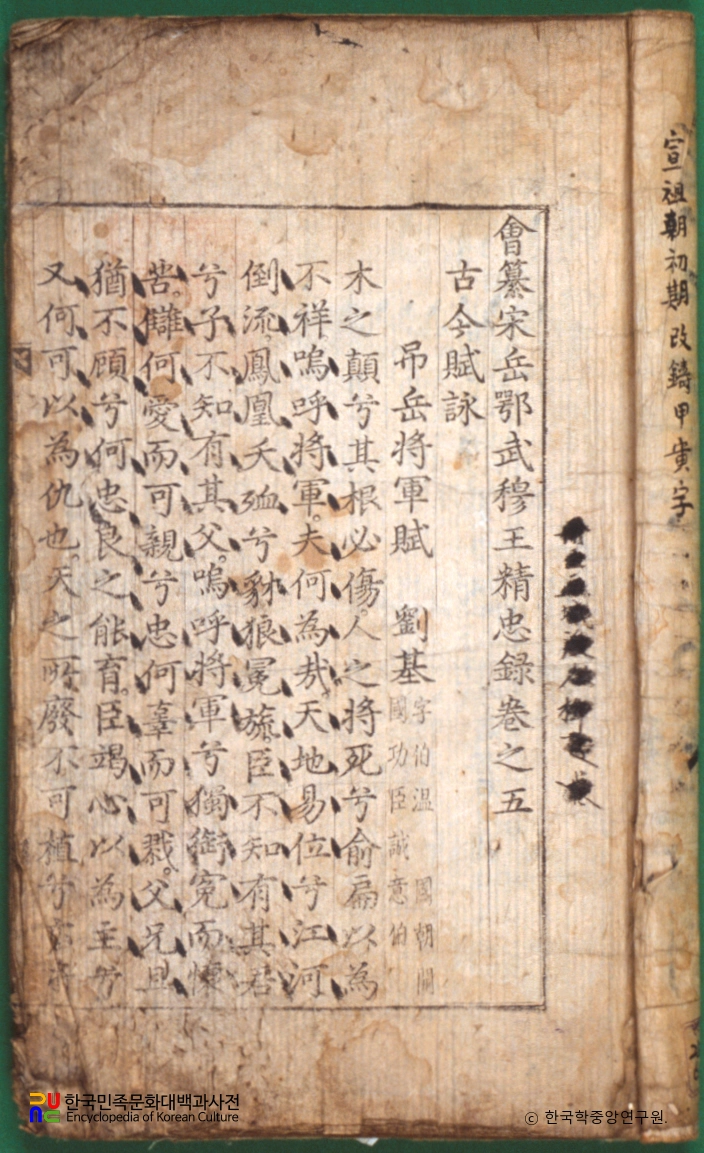 宣祖朝初期改鑄甲寅字
會纂宋岳鄂武穆王精忠錄卷之五
古今賦詠
吊岳將軍賦 劉基 字伯溫 國朝開國功臣誠意伯
木之顛兮其根必傷人之將死兮俞扁以為
不祥嗚呼將軍夫何為哉天地易位兮江河
倒流鳳凰夭殈兮豺狼冕旒臣不知有其君
兮子不知有其父嗚呼將軍兮獨銜冤而懷
苦讎何愛而可親兮忠何辜而可戮父兄且
猶不顧兮何忠良之能育臣竭心以為主兮
又何可以為仇也天之所廢不可植兮
한국민족문화대백과사전
Encyclopedia of Korean Culture
© 한국학중앙연구원.